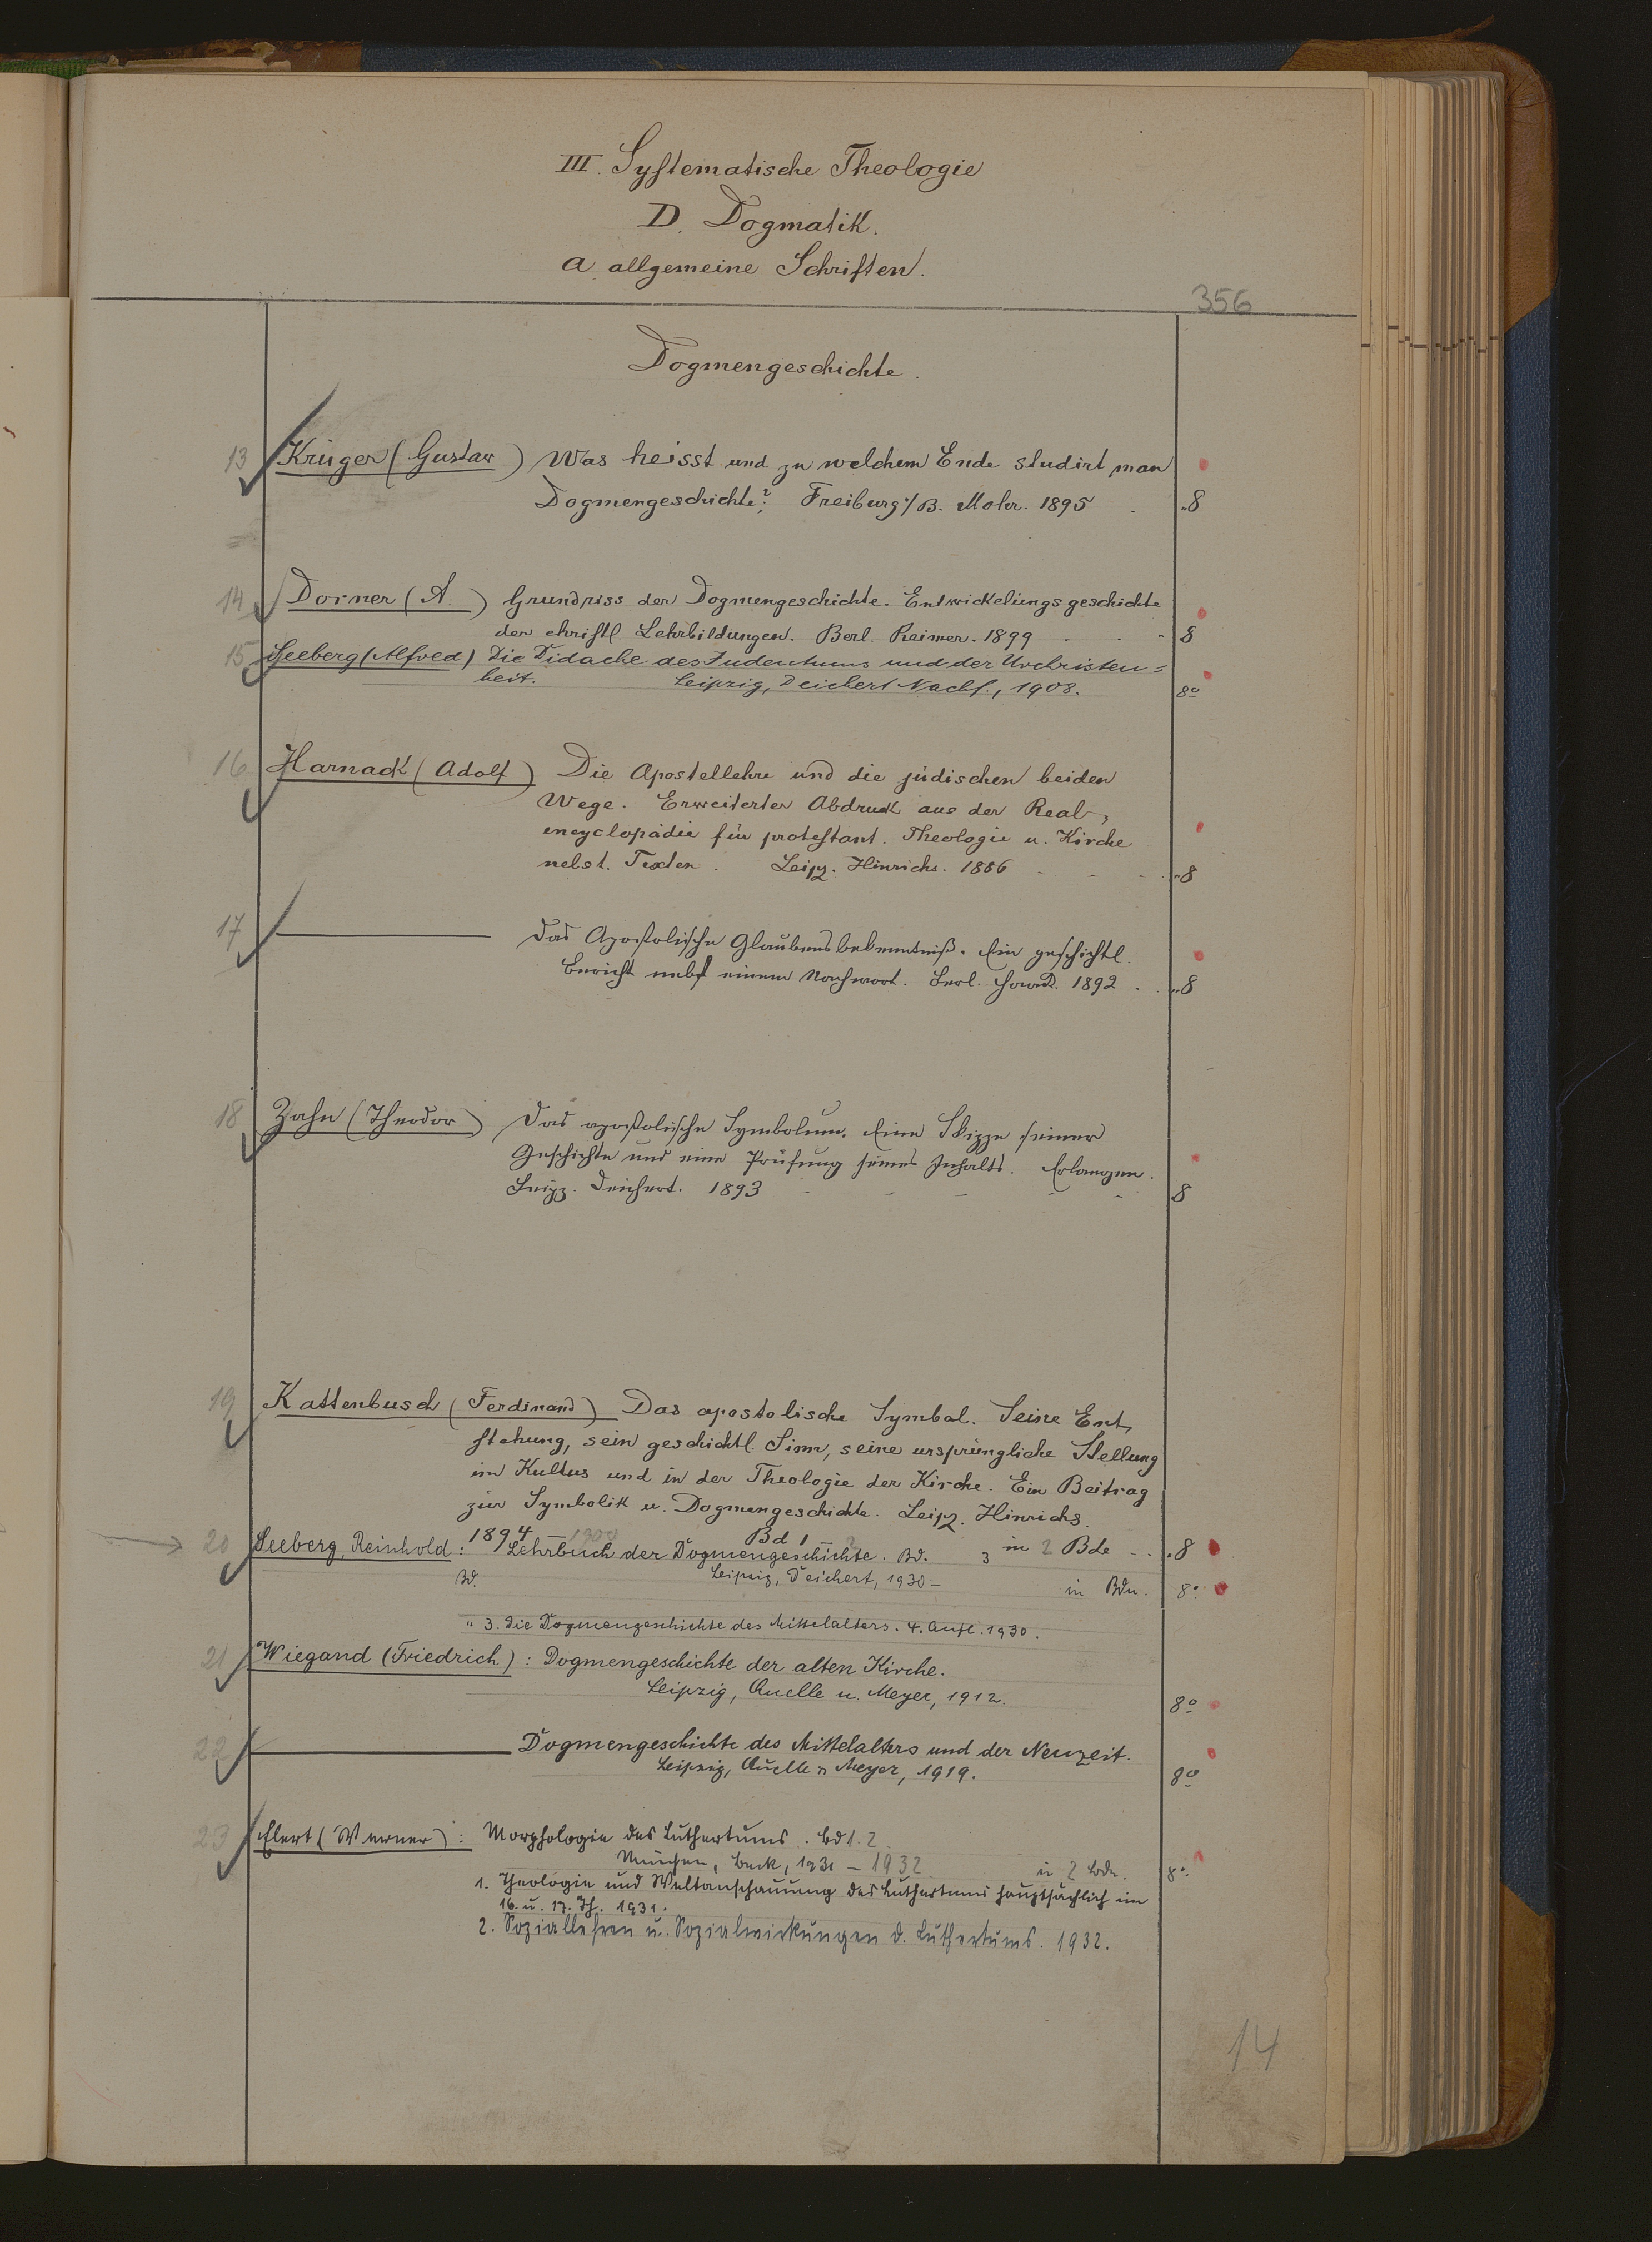 III. Systematische Theologie
D. Dogmatik.
a allgemeine Schriften.
356
Dogmengeschichte.
13 Krüger (Gustav) Was heisst und zu welchem Ende studirt man
Dogmengeschichte? Freiburg i/B. Mohr. 1895 . 8
14 Dorner (A.) Grundriss der Dogmengeschichte. Entwickelungsgeschichte
der christl. Lehrbildungen. Berl. Reimer. 1899 8
15 Seeberg (Alfred) Die Didache des Judentums und der Urchristen=
heit. Leipzig, Deichert Nachf., 1908. 8o
16 Harnack (Adolf) Die Apostellehre und die jüdischen beiden
Wege. Erweiterter Abdruck aus der Real-
encyclopädie für protestant. Theologie u. Kirche
nebst. Texten. Leipz. Hinrichs. 1886 8
17 Das Apostolische Glaubensbekenntniß. Ein geschichtl.
Bericht nebst einem Nachwort. Berl. 1892 . . 8
18 Zahn (Theodor) Das apostolische Symbolum. Eine Skizze seiner
Geschichte und eine Prüfung seines Inhalts. Erlangen.
Leipz. Deichert. 1893 8
19 Kattenbusch (Ferdinand) Das apostolische Symbol. Seine Ent-
stehung, sein geschichtl. Sinn, seine ursprüngliche Stellung
im Kultus und in der Theologie der Kirche. Ein Beitrag
zur Symbolik u. Dogmengeschichte. Leipz. Hinrichs.
1894 – 1900 Bd 1 – 2 in 2 Bde . . 8
20 Seeberg, Reinhold: Lehrbuch der Dogmengeschichte. Bd. 3
Bd. Leipzig, Deichert, 1930 – in Bdn. 8o
" 3. Die Dogmengeschichte des Mittelalters. 4. Aufl. 1930.
21 Wiegand (Friedrich): Dogmengeschichte der alten Kirche.
Leipzig, Quelle u. Meyer, 1912. 8o
22 Dogmengeschichte des Mittelalters und der Neuzeit.
Leipzig, Quelle u. Meyer, 1919. 8o
23 Elert (Werner): Morphologie des Luthertums. Bd 1. 2.
München, Beck, 1931 – 1932 in 2 Bdn. 8o
1. Theologie und Weltanschauung des Luthertums hauptsächlich im
16. u. 17. Jh. 1931.
2. Soziallehren u. Sozialwirkungen d. Luthertums. 1932.
14